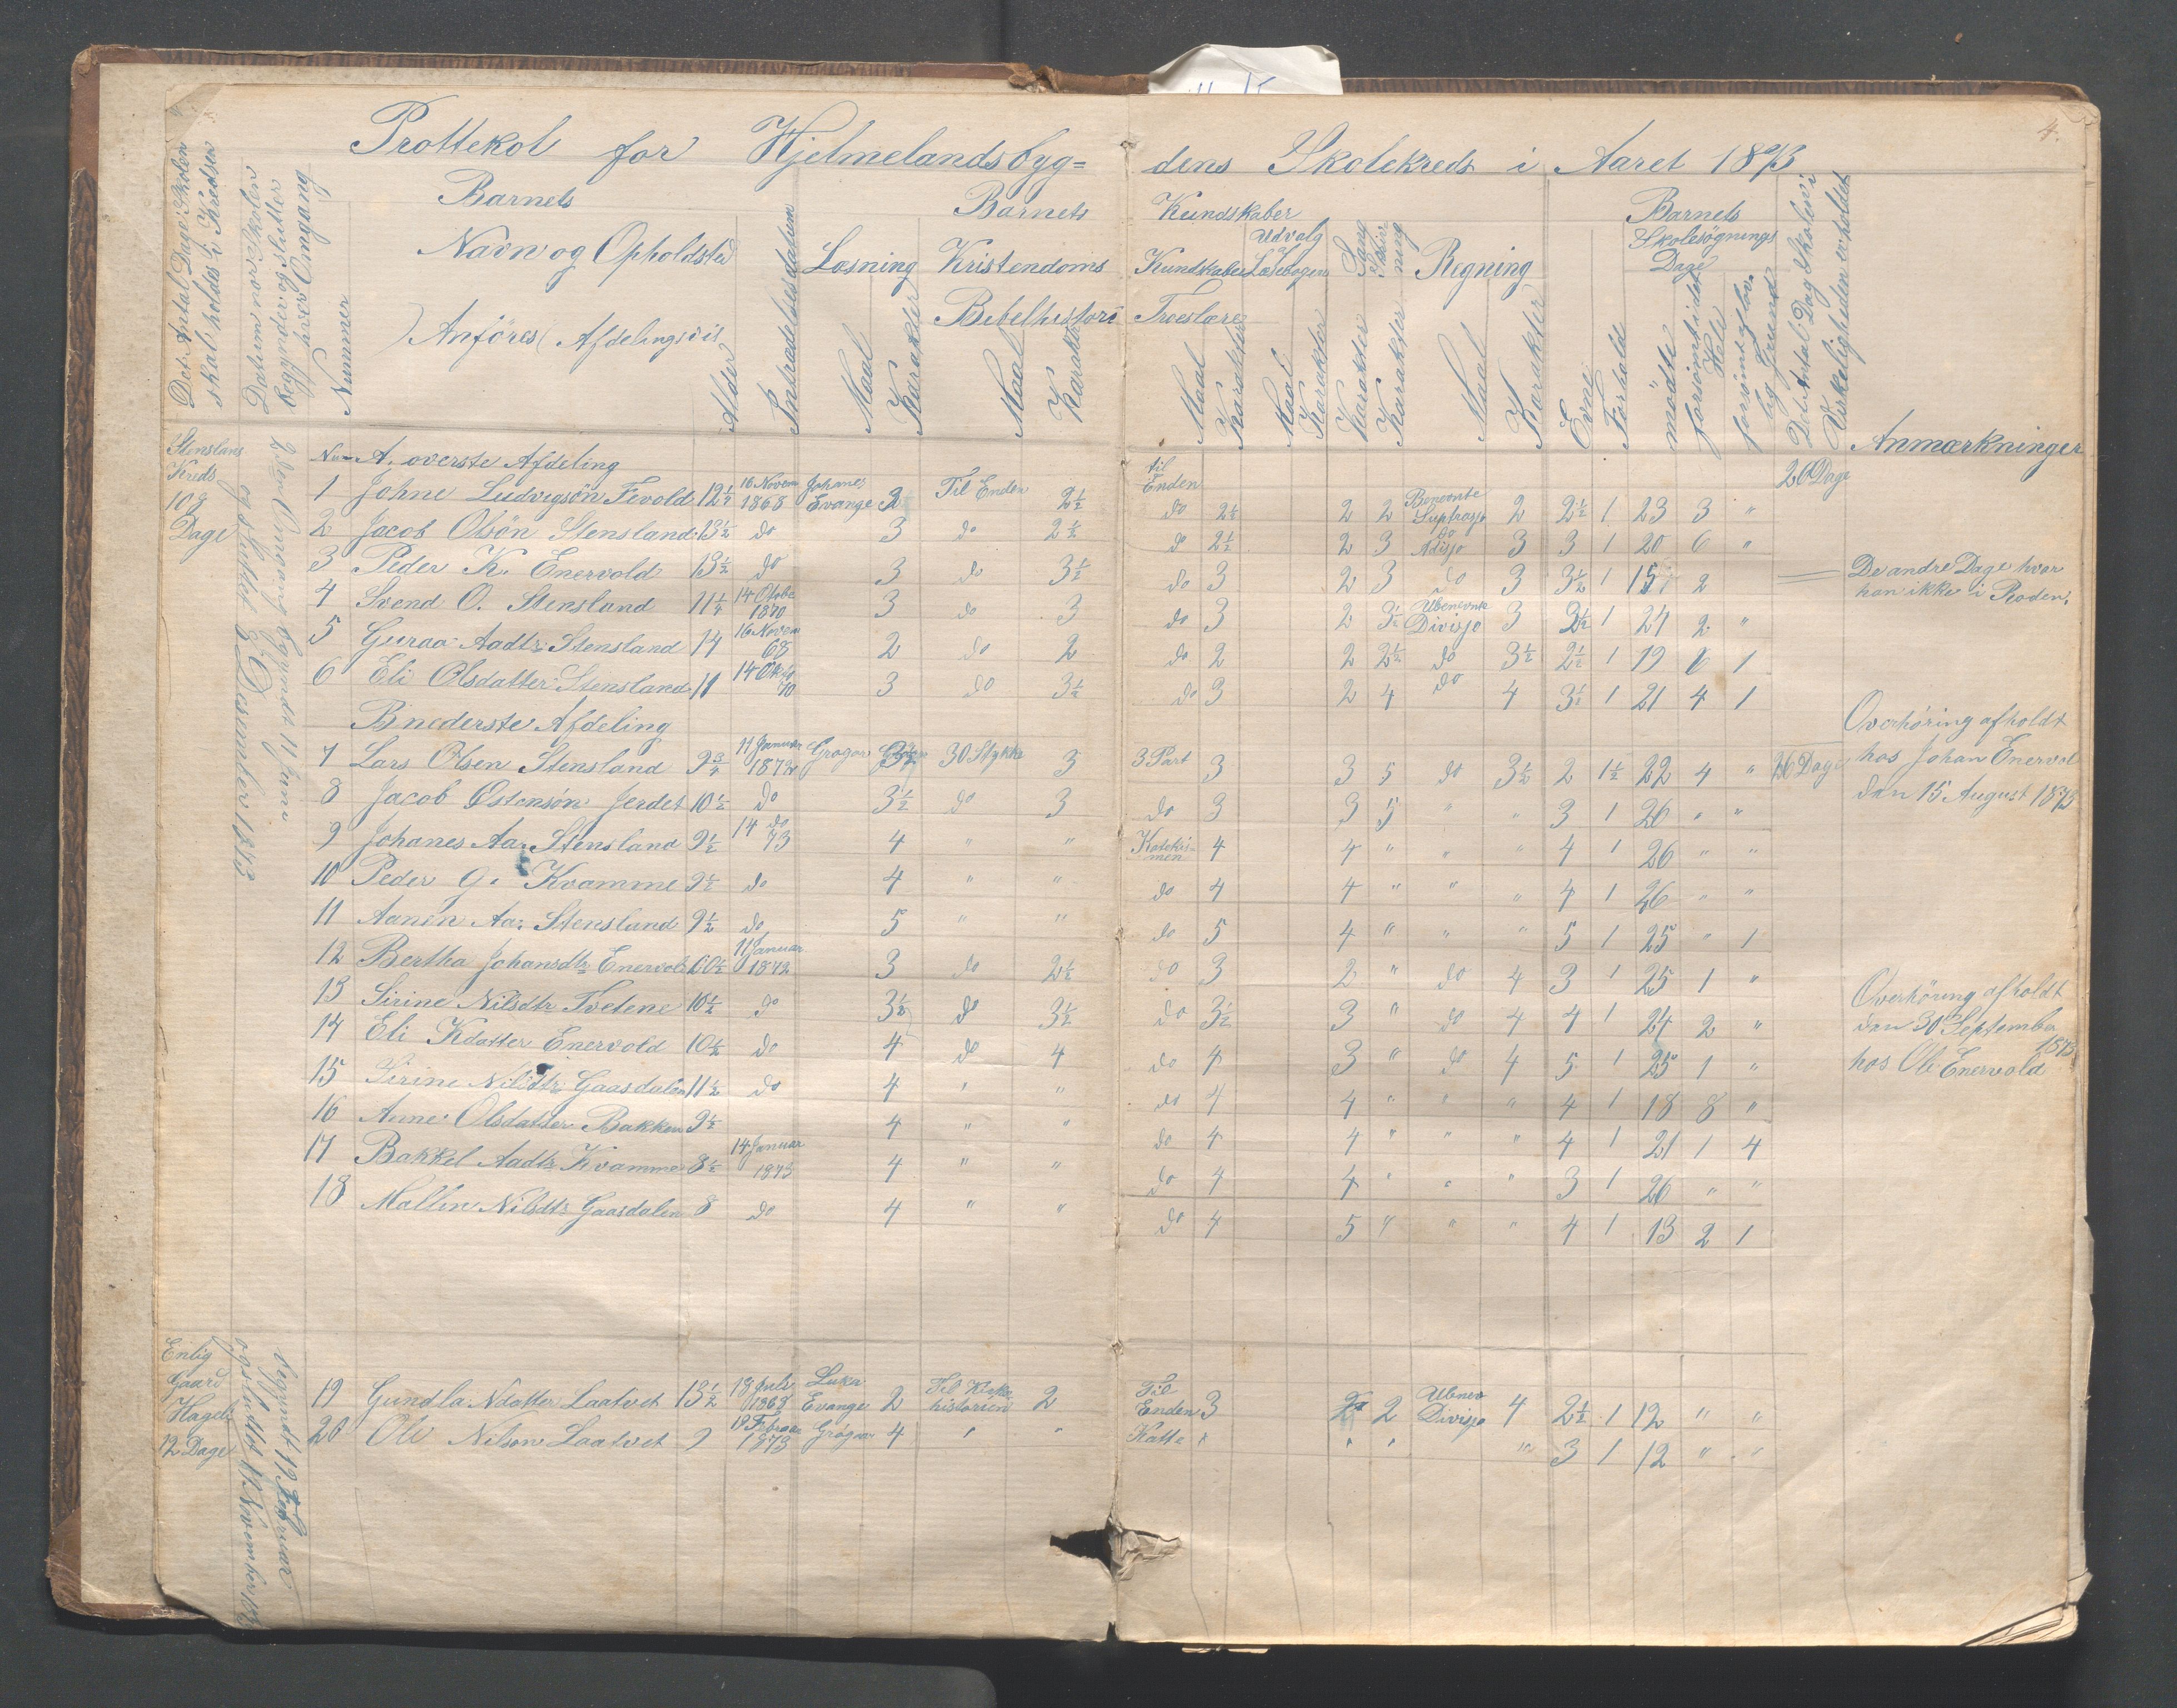 4.
Prottekol for Hjelmelandsbyg= dens Skolekreds i Aaret 1873
Det Antal Dage Skolen skal holdes i Kredsen
Datum naar Skolen begynder og slutter hver Omgang
Nummer
Barnets
Navn og Opholdsted
(Anföres Afdelingsvis)
Alder
Intrædelsesdatum
Barnets Kundskaber
Læsning
Maal
Karakter
Kristendoms Kundskaber
Bibelhistori
Maal
Karakter
Troeslære
Maal
Karakter
Udvalg af Læsebogen
Maal
Karakter
Sang
Karakter
Skrivning
Karakter
Regning
Maal
Karakter
Evne
Forhold
Barnets
Skolesögnings
Dage
mödte
forsömte
Hele
forsömt af lovlig Grund
Det Antal Dag Skolen i Virkeligheden er holdet
Anmærkninger
Stenslans
Kreds
108
Dage
2den Omgang begyndt 11 Juni
og sluttet 6 Desember 1873
A. overste Afdeling
26 Dage
1 Johne Ludvigsön Fevold 12 1/2 16 Novem 1868 Johanes Evange 2 Til Enden 2 1/2 til Enden do 2 1/2 2 2 Benevnte Suptrasjo 2 2 1/2 1 23 3 "
2 Jacob Olsön Stensland 13 1/2 do 3 do 2 1/2 do 2 1/2 2 3 do Adisjo 3 3 1 20 6 "
3 Peder K. Enervold 13 1/2 do 3 do 3 1/2 do 3 2 3 do 3 3 1/2 1 15 2 De andre Dage hvar han ikke i Roden.
4 Svend O. Stensland 11 1/4 14 Otobe 1870 3 do 3 do 3 2 3 1/2 Ubenevnte Divisjo 3 3 1/2 1 24 2 "
5 Guraa Aadtr Stensland 14 16 Novem 68 2 do 2 do 2 2 2 1/2 do 3 1/2 2 1/2 1 19 6 1
6 Eli Olsdatter Stensland 11 14 Okto 70 3 do 3 1/2 do 3 2 4 do 4 3 1/2 1 21 4 1
B nederste Afdeling
7 Lars Olsen Stensland 9 3/4 11 Januar 1872 3 1/2 30 Stykke 3 3 Part 3 3 5 do 3 1/2 2 1 1/2 22 4 " 26 Dage
Overhøring afholdt
hos Johan Enervol
den 15 August 1873
8 Jacob Østensön Jerdet 10 1/2 do 3 1/2 do 3 do 3 3 5 " " 3 1 26 " "
9 Johanes Aa. Stensland 9 1/2 14 do 73 4 " " Katekismen 4 4 " " " 4 1 26 " "
10 Peder G. Kvamme 9 1/2 do 4 " " do 4 4 " " " 4 1 26 " "
11 Aanen Aa. Stensland 9 1/2 do 5 " " do 5 4 " " " 5 1 25 " 1
12 Bertha Johansdtr Enervol 10 1/2 11 Januar 1872 3 do 2 1/2 do 3 2 " do 4 3 1 25 1 "
13 Sirine Nilsdtr Tvetene 10 1/2 do 3 1/2 do 3 1/2 do 3 1/2 3 " do 4 4 1 24 2 "
Overhöring afholdt
den 30 September 1873
hos Ole Enervold
14 Eli Kdatter Enervold 10 1/2 do 4 do 4 do 4 3 " do 4 5 1 25 1 "
15 Sirine Nilsdtr Gaasdalen 11 1/2 do 4 " " do 4 4 " " " 4 1 18 8 "
16 Anne Olsdatter Bakken 9 1/2 4 " " do 4 4 " " " 4 1 21 1 4
17 Bakkel Aadtr Kvamme 8 1/2 14 Januar 1873 4 " " do 4 4 " " " 3 1 26 " "
18 Mallin Nilsdtr Gaasdalen 8 do 4 " " do 4 5 " " " 4 1 13 2 1
Enlig
Gaard
12 Dage
begyndt 19 Februar
og sluttet 11 November
19 Gundla Ndatter Laatvet 13 1/2 18 Juli 1868 Luka Evange 2 Til Kirke historien 2 Til Enden 3 2 Ubnev Divisjo 4 2 1/2 1 12 " "
20 Ole Nilson Laatvet 9 19 Februar 1873 4 " " Katte " " " " 3 1 12 " "